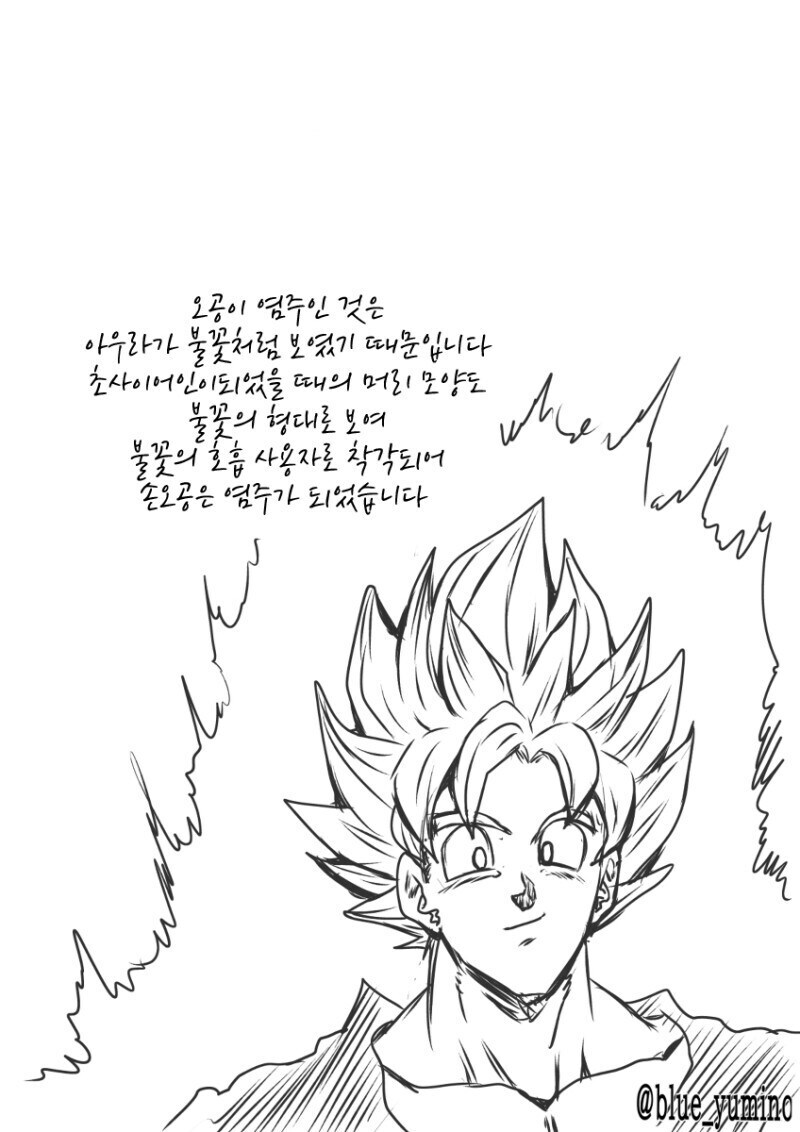 오공이 염주인 것은
아우라가 불꽃처럼 보였기 때문입니다
초사이어인이되었을 때의 머리 모양도
불꽃의 형대로 보여
불꽃의 호흡 사용자로 착각되어
손오공은 염주가 되었습니다
@blue_yumino